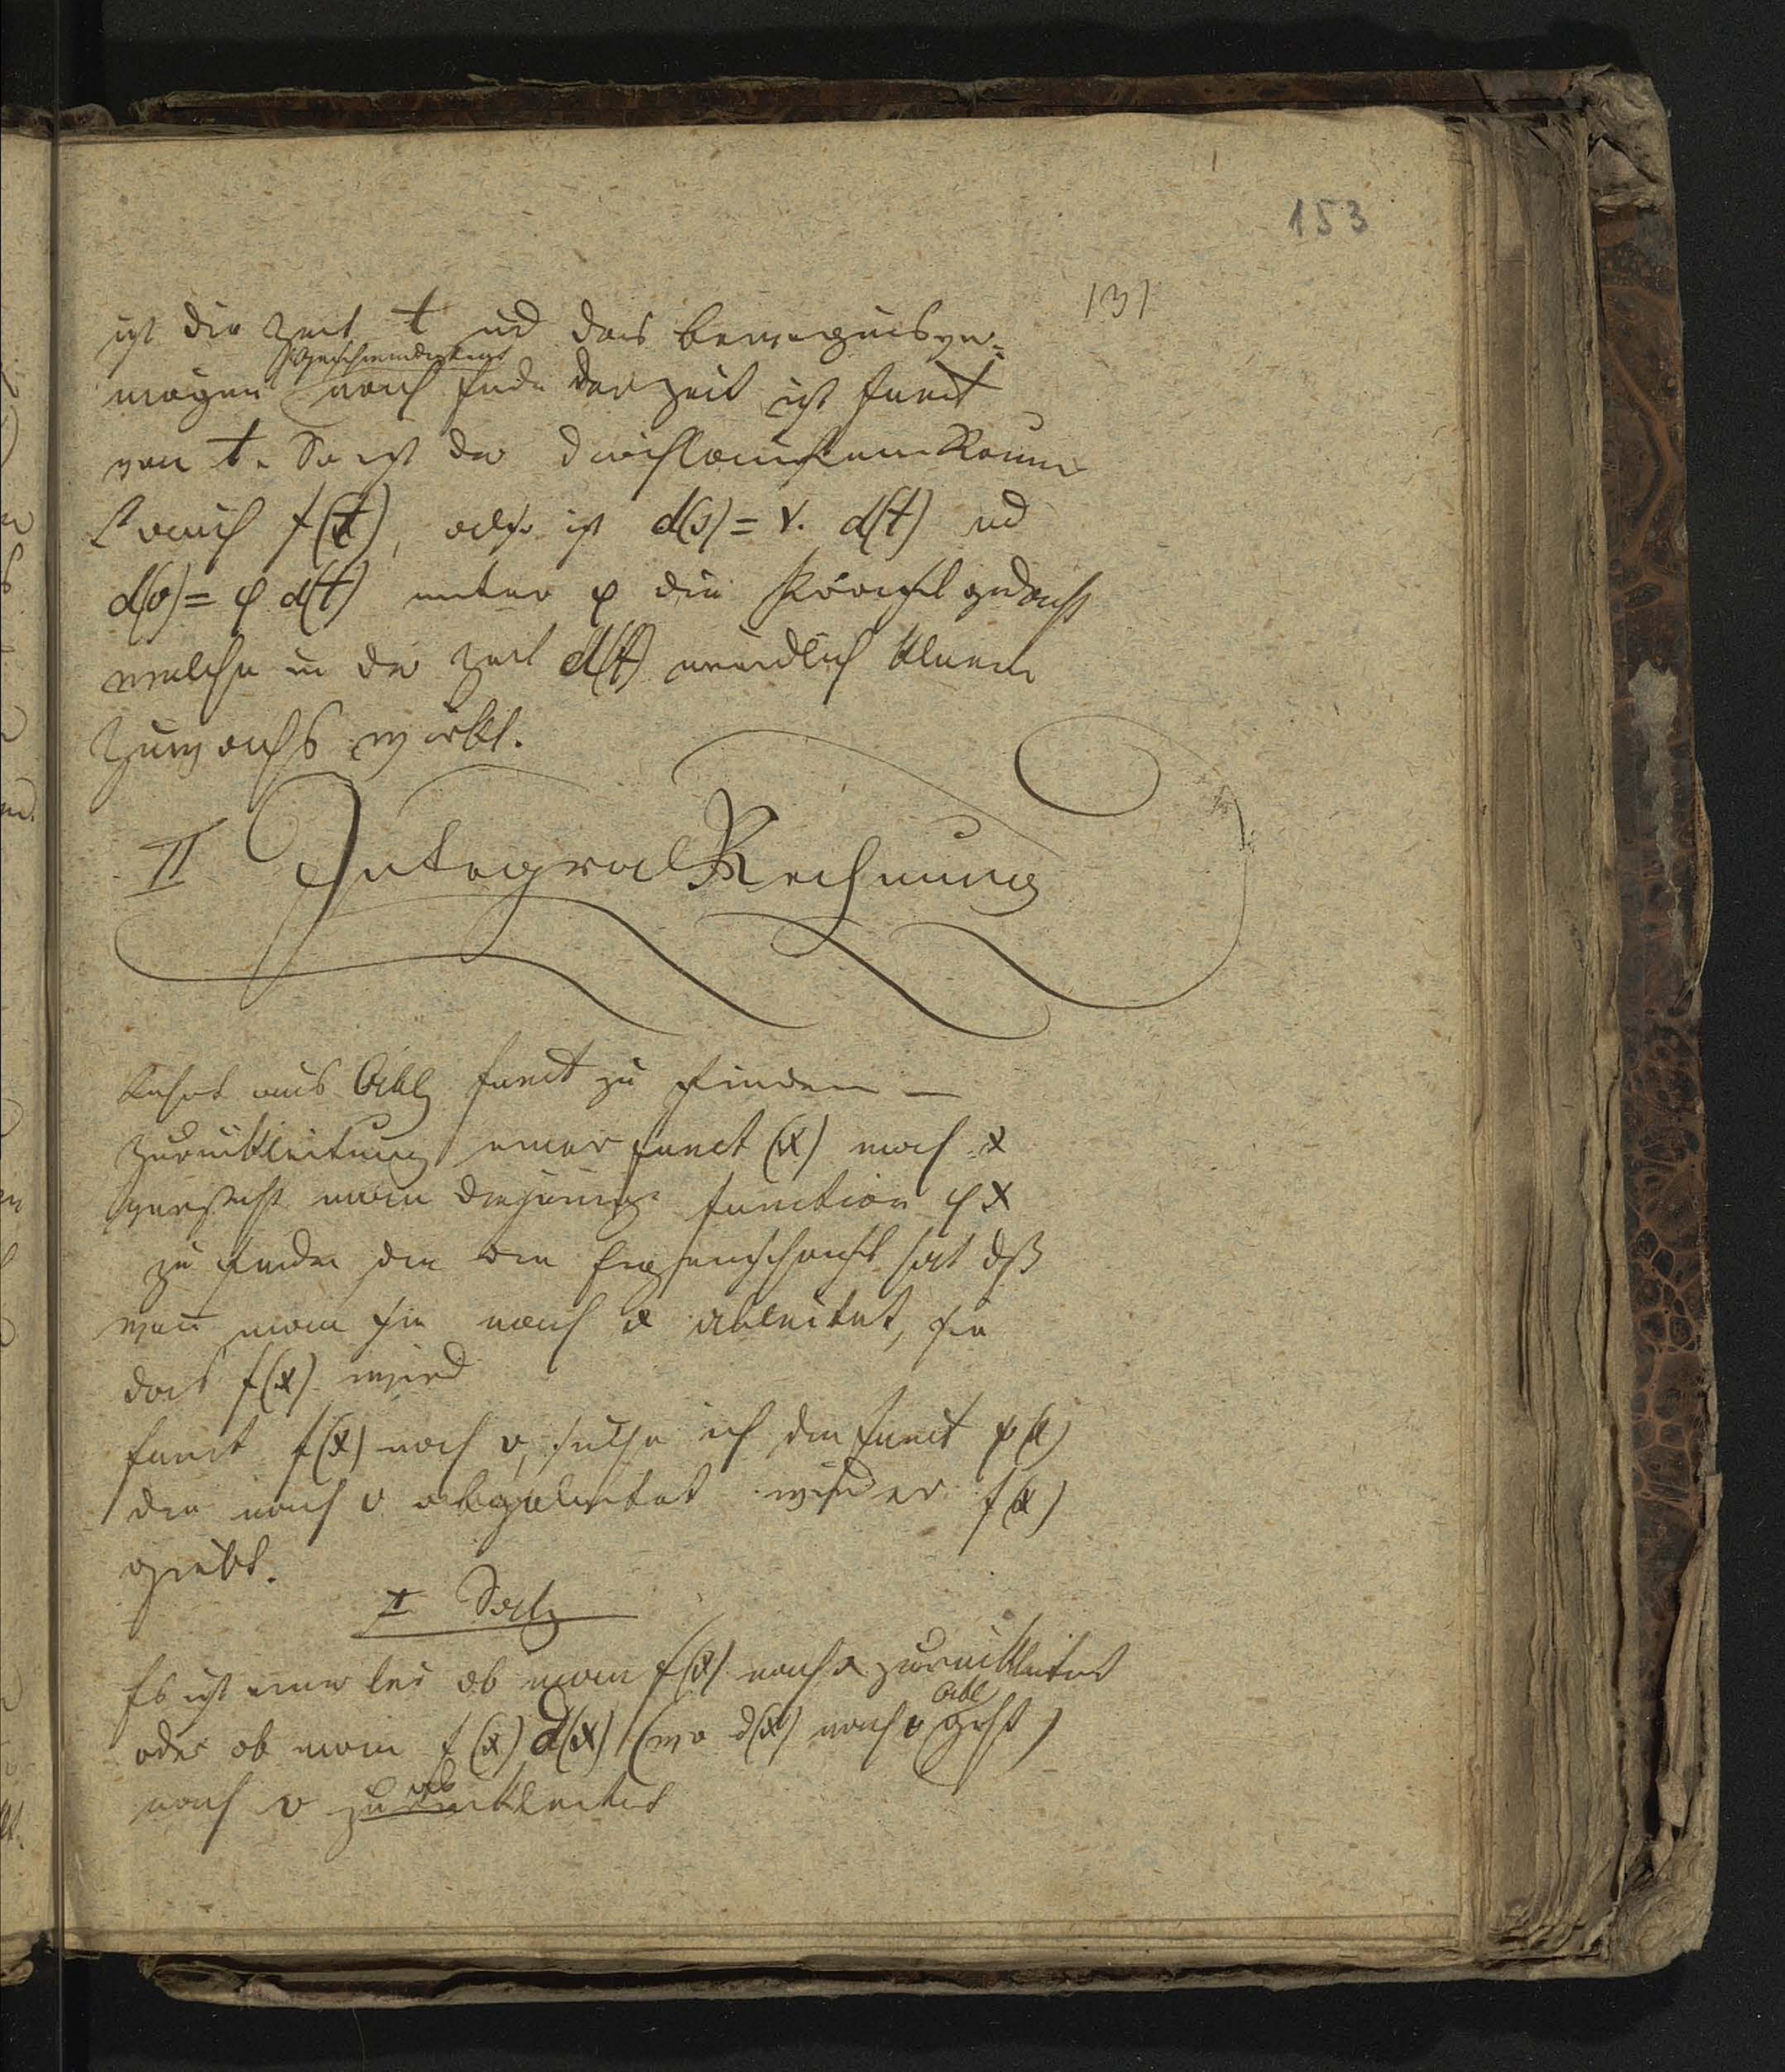 153
131
ist die Zeit t und das Bewegungsver=
Geschwindigkeit
mögen nach Ende der Zeit ist funct
von t. So ist der durchlaufene Raum
auch f(t), also ist d(s) = v. d(t) ud
d(v) = φ d(t) unter φ die Kraft gedacht
welche in der Zeit d(t) unendlich kleinen
Zuwachs wirkt.
II Integral Rechnung
Lehrt aus Abltg funct zu finden —
Zurükleitung einer funct (x) nach x
versteht man diejenige function φx
zu finden die die Eigenschaft hat dß
wen man sie nach x ableitet, sie
das f(x) wird
funct f(x) nach v, suche ich die funct φ(x)
die nach v abgeleitet wieder f(x)
giebt.
I Satz
Es ist einerlei ob man f(x) nach x zurükleitet
Abl
oder ob man f(x) d(x) (wo d(x) nach v geht)
ab
nach v zurükleitet